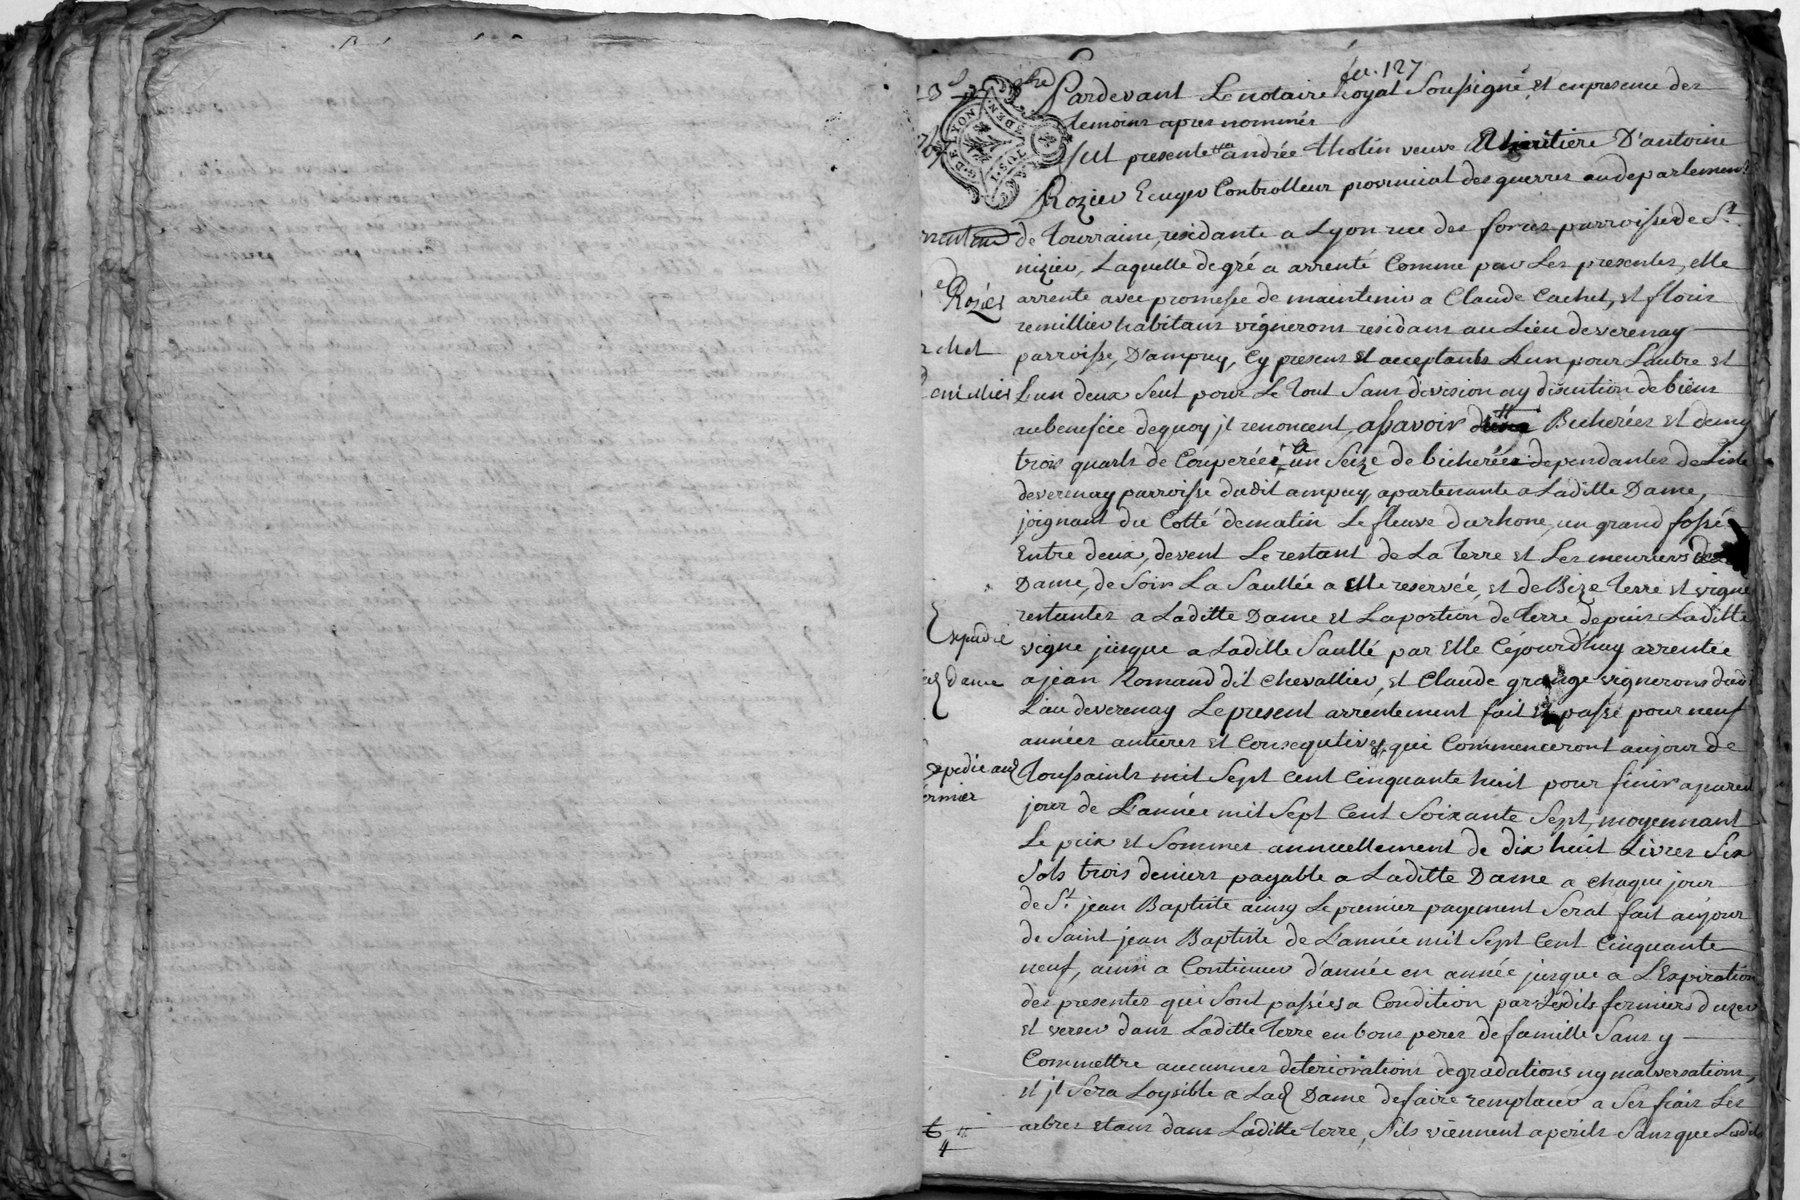 fo. 127
Pardevant Le notaire Royal Soussigné, et en presence des
temoins apres nommés
fut presente andrée tholin veuve et heritiere D'antoine
Rozier Ecuyer Controlleur provincial des guerres au departement
de Tourraine, residante a Lyon rue des forces parroisse de St
nizier, Laquelle de gré a arrenté comme par Les presentes, elle
arrente avec promesse de maintenir a Claude Cachet, et floris
remillier habitans vignerons residans au Lieu de verenay
parroisse, D'ampuy, Cy presens et acceptants Lun pour Lautre et
Lun deux Seul pour Le Tout Sans division ny discution de biens
au benefice de quoy jl renoncent, assavoir Bicherées et demy
trois quarts de Couperées, un Seize de bicherées dependantes de Lisle
de verenay parroisse dudit ampuy, apartenante a Laditte Dame,
joignant du Cotté de matin Le fleuve du rhone, un grand fossé
Entre deux, devent Le restant de La terre et Les meuriers
Dame, de Soir La Saullée a Elle reservée, et de Bize terre et vigne
restantes a Laditte Dame et La portion de terre depuis Laditte
vigne jusque a Laditte Saullé par Elle Cejourdhuy arrentée
a jean Romand dit chevallier, et Claude grange vignerons dudi
Lieu de verenay Le present arrentement fait et passé pour neuf
années antieres et Consequtives, qui Commenceront aujour de
Toussaints mil Sept Cent Cinquante huit pour finir a pareil
jour de L'année mil Sept Cent Soixante Sept, moyennant
Le prix et Sommes annuellement de dix huit Livres Six
Sols trois deniers payable a Laditte Dame a chaque jour
de St. jean Baptiste ainsy Le premier payement Serat fait aujour
de Saint jean Baptiste de L'année mil Sept Cent Cinquante
neuf, ainsi a Continuer d'année en année jusque a L'Expiration
des presentes qui Sont passées a Condition par Lesdits fermiers duzer
et verser dans Laditte terre en bons peres de famille Sans y
Commettre aucunnes deteriorations degradations ny malversations,
et jl Sera Loysible a Lad Dame de faire remplacer a Ses frais Les
arbres etans dans Laditte terre, S'ils viennent a perils Sans que Lesdits
Rozier
Expedié
a lad dame
Expedié aud
fermier
G. DE LYON